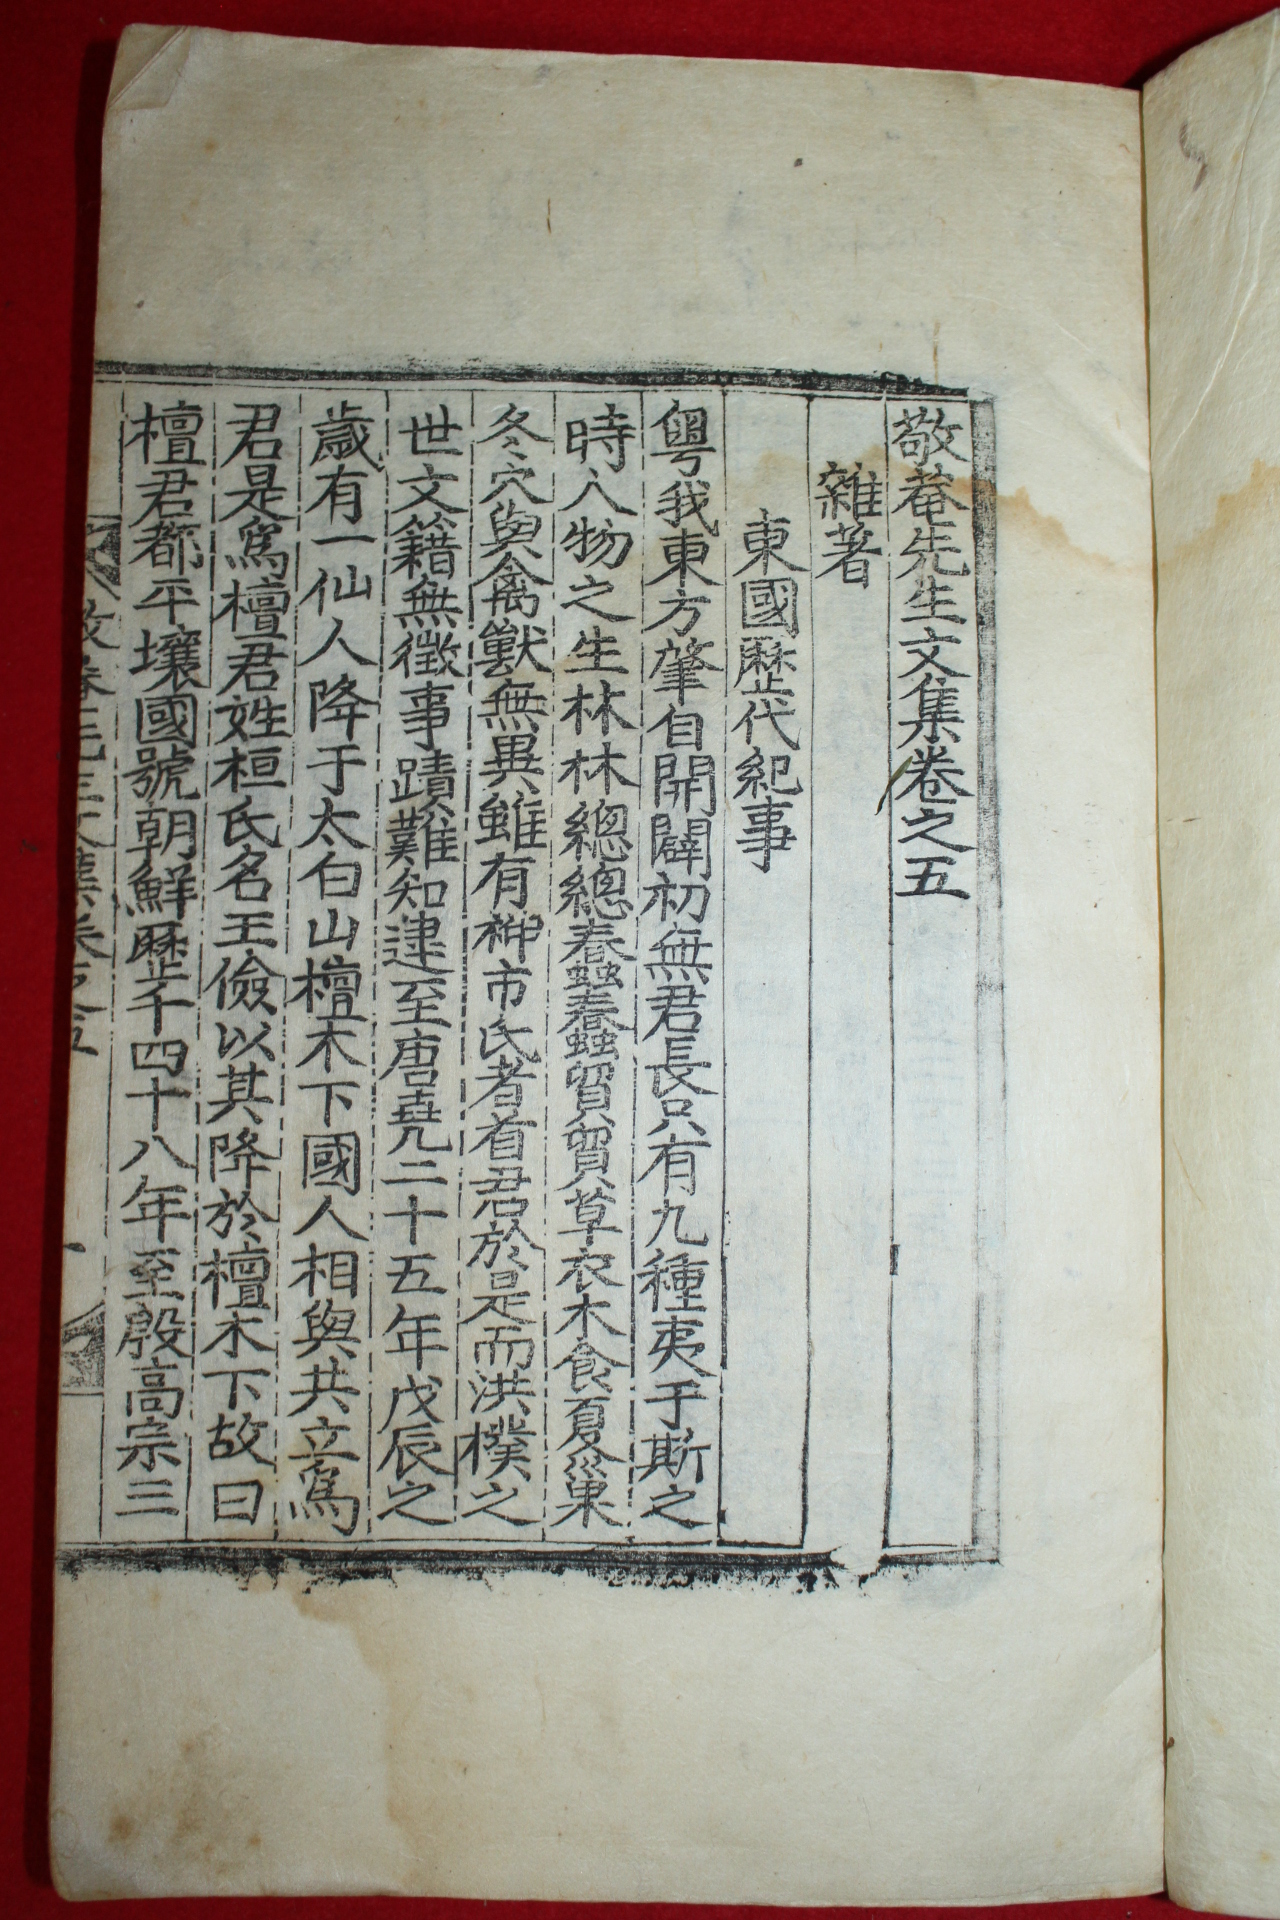 敬菴先生文集卷之五
雜著
東國歷代紀事
粤我東方肇自開闢初無君長只有九種夷于斯之
時人物之生林林總總春蟲春蟲貿貿草衣木食夏巢
冬穴與禽獸無異雖有神市氏者首君於是而洪樸之
世文籍無徵事蹟難知逮至唐堯二十五年戊辰之
歲有一仙人降于太白山檀木下國人相與共立爲
君是爲檀君姓桓氏名王儉以其降於檀木下故曰
檀君都平壤國號朝鮮歷千四十八年至殷高宗三